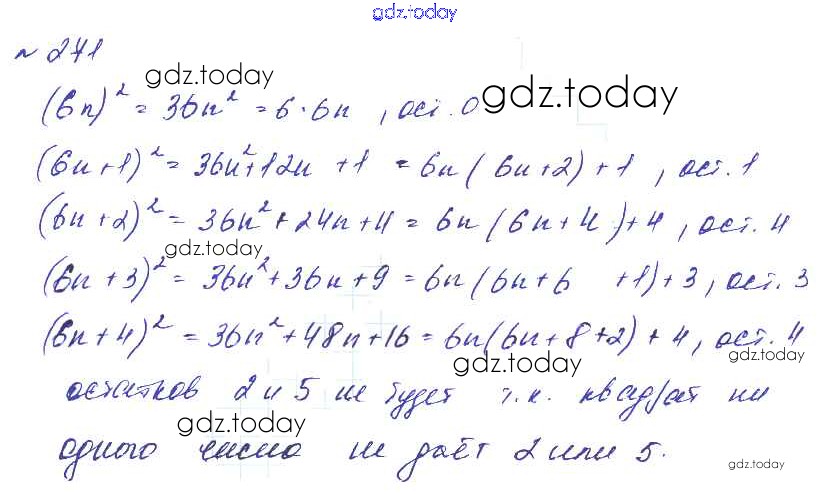 gdz.today
№ 271
gdz.today
(6n)² = 36n² = 6·6n , ост. 0
gdz.today
(6n+1)² = 36n²+12n +1 = 6n(6n+2)+1 , ост. 1
(6n+2)² = 36n² + 24n+4 = 6n(6n+4)+4 , ост. 4
gdz.today
(6n+3)² = 36n²+36n+9 = 6n(6n+6 +1)+3, ост. 3
(6n+4)² = 36n²+48n+16 = 6n(6n+8+2)+4, ост. 4
gdz.today
gdz.today
остатков 2 и 5 не будет т.к. квадрат ни
gdz.today
одного числа не даёт 2 или 5.
gdz.today